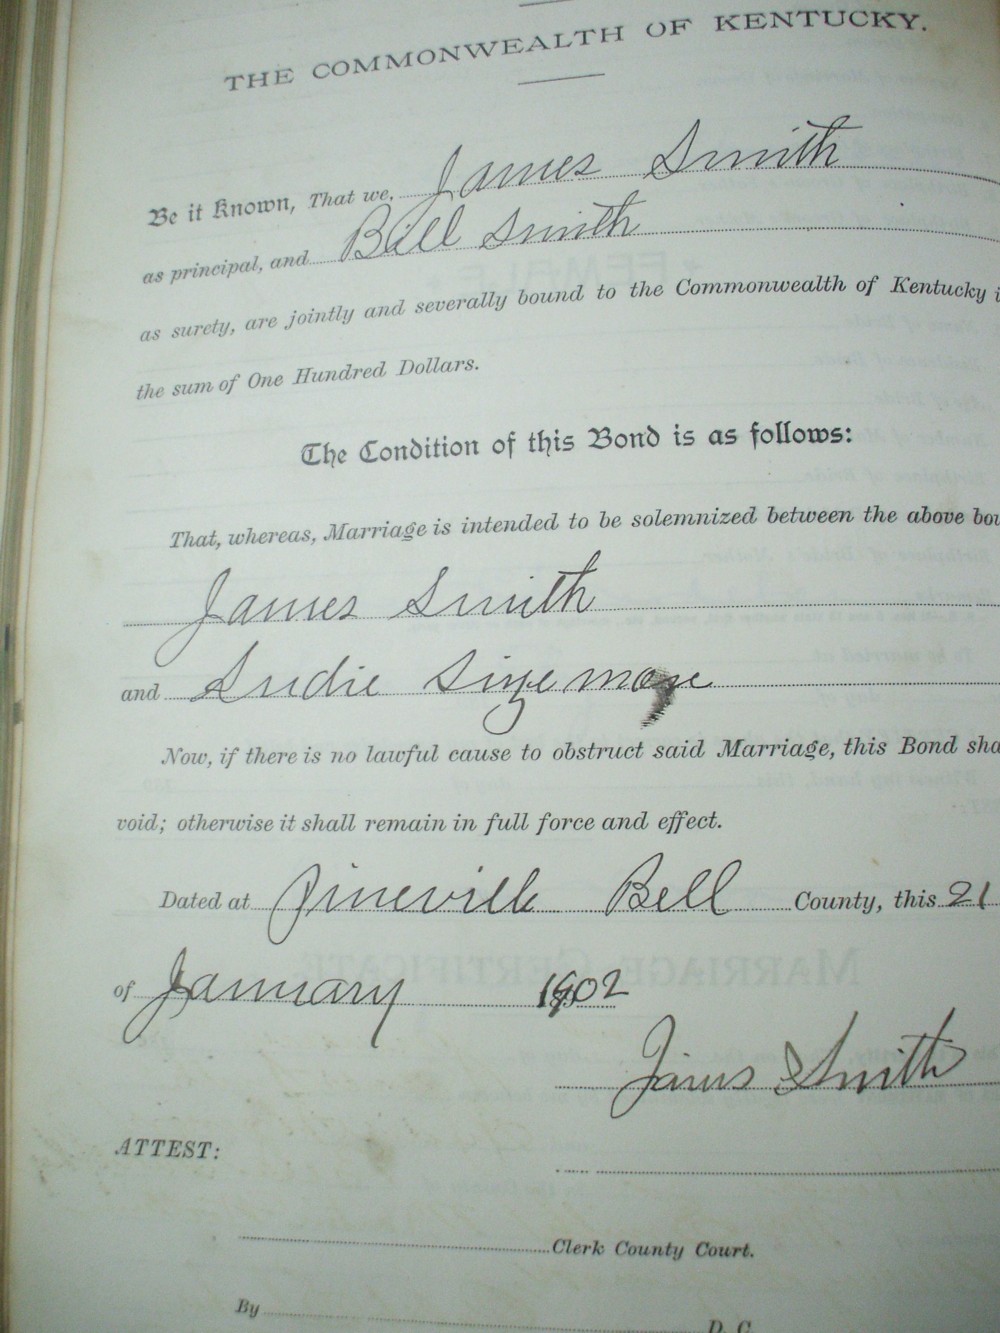 THE COMMONWEALTH OF KENTUCKY.
Be it Known, That we, James Smith
as principal, and Bill Smith
as surety, are jointly and severally bound to the Commonwealth of Kentucky i
the sum of One Hundred Dollars.
The Condition of this Bond is as follows:
That, whereas, Marriage is intended to be solemnized between the above bou
James Smith
and Sudie Sizemore
Now, if there is no lawful cause to obstruct said Marriage, this Bond sha
void; otherwise it shall remain in full force and effect.
Dated at Pineville Bell County, this 21
of January 1902
James Smith
ATTEST:
Clerk County Court.
By D. C.